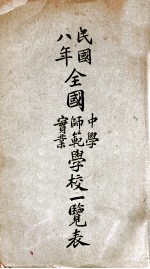 民國
八年
全國
中學
師範
實業
學校一覽表